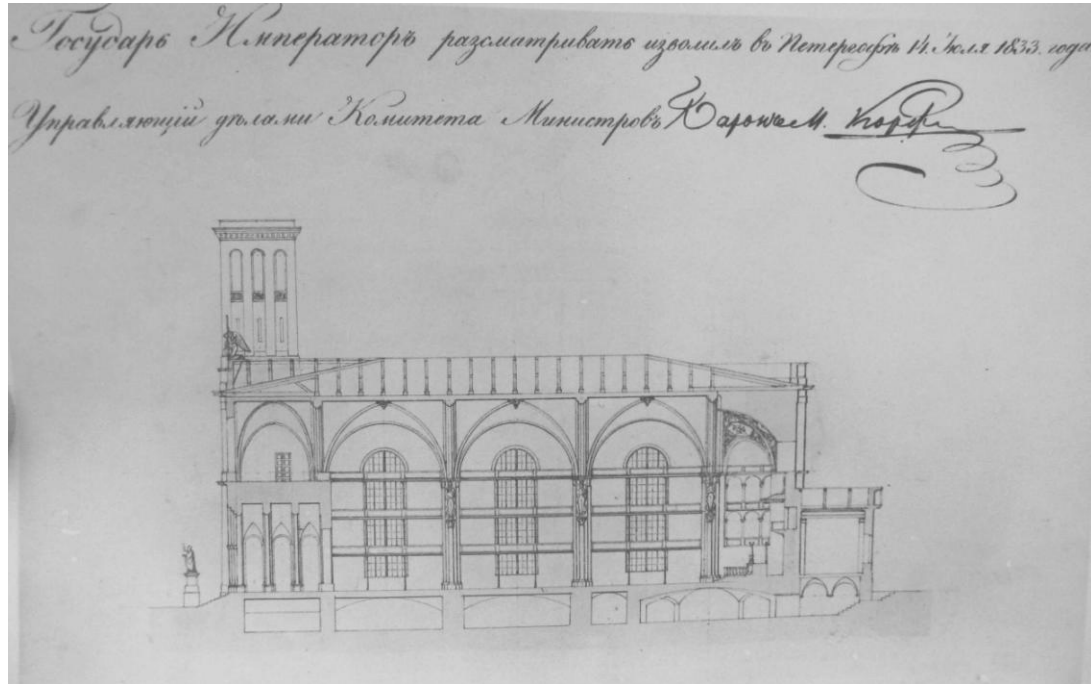 Государь Императоръ разсматривать изволилъ въ Петергофѣ 14. Іюля 1833. года
Управляющій дѣлами Комитета Министровъ Баронъ М. Корфъ